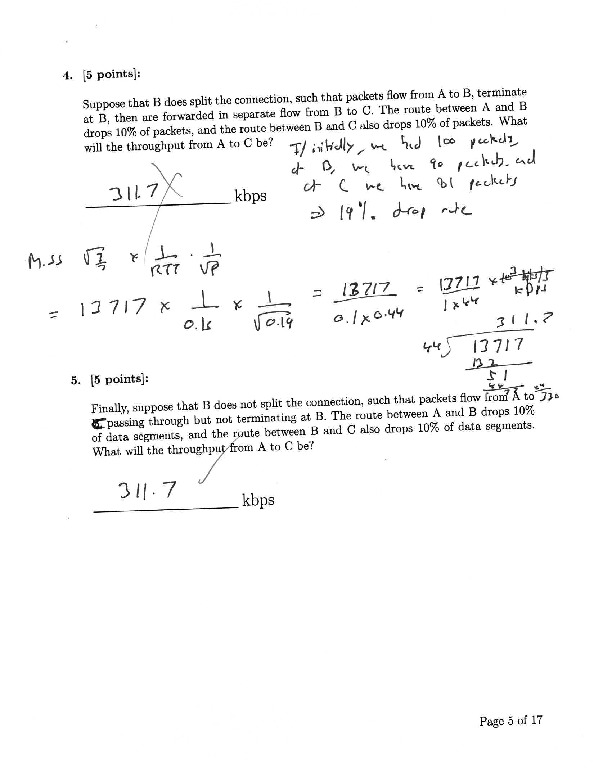 4. [5 points]:
Suppose that B does split the connection, such that packets flow from A to B, terminate
at B, then are forwarded in separate flow from B to C. The route between A and B
drops 10% of packets, and the route between B and C also drops 10% of packets. What
will the throughput from A to C be?
If initially, we had 100 packets,
at B, we have 90 packets and
at C we have 81 packets
⇒ 19% drop rate
311.7 kbps
MSS √3/2 × 1/RTT · 1/√P
= 13717 × 1/0.1s × 1/√0.19 = 13717/0.1×0.44 = 13717/1×44
311.7
44) 13717
132
51
44
5. [5 points]:
Finally, suppose that B does not split the connection, such that packets flow from A to
C passing through but not terminating at B. The route between A and B drops 10%
of data segments, and the route between B and C also drops 10% of data segments.
What will the throughput from A to C be?
311.7 kbps
Page 5 of 17